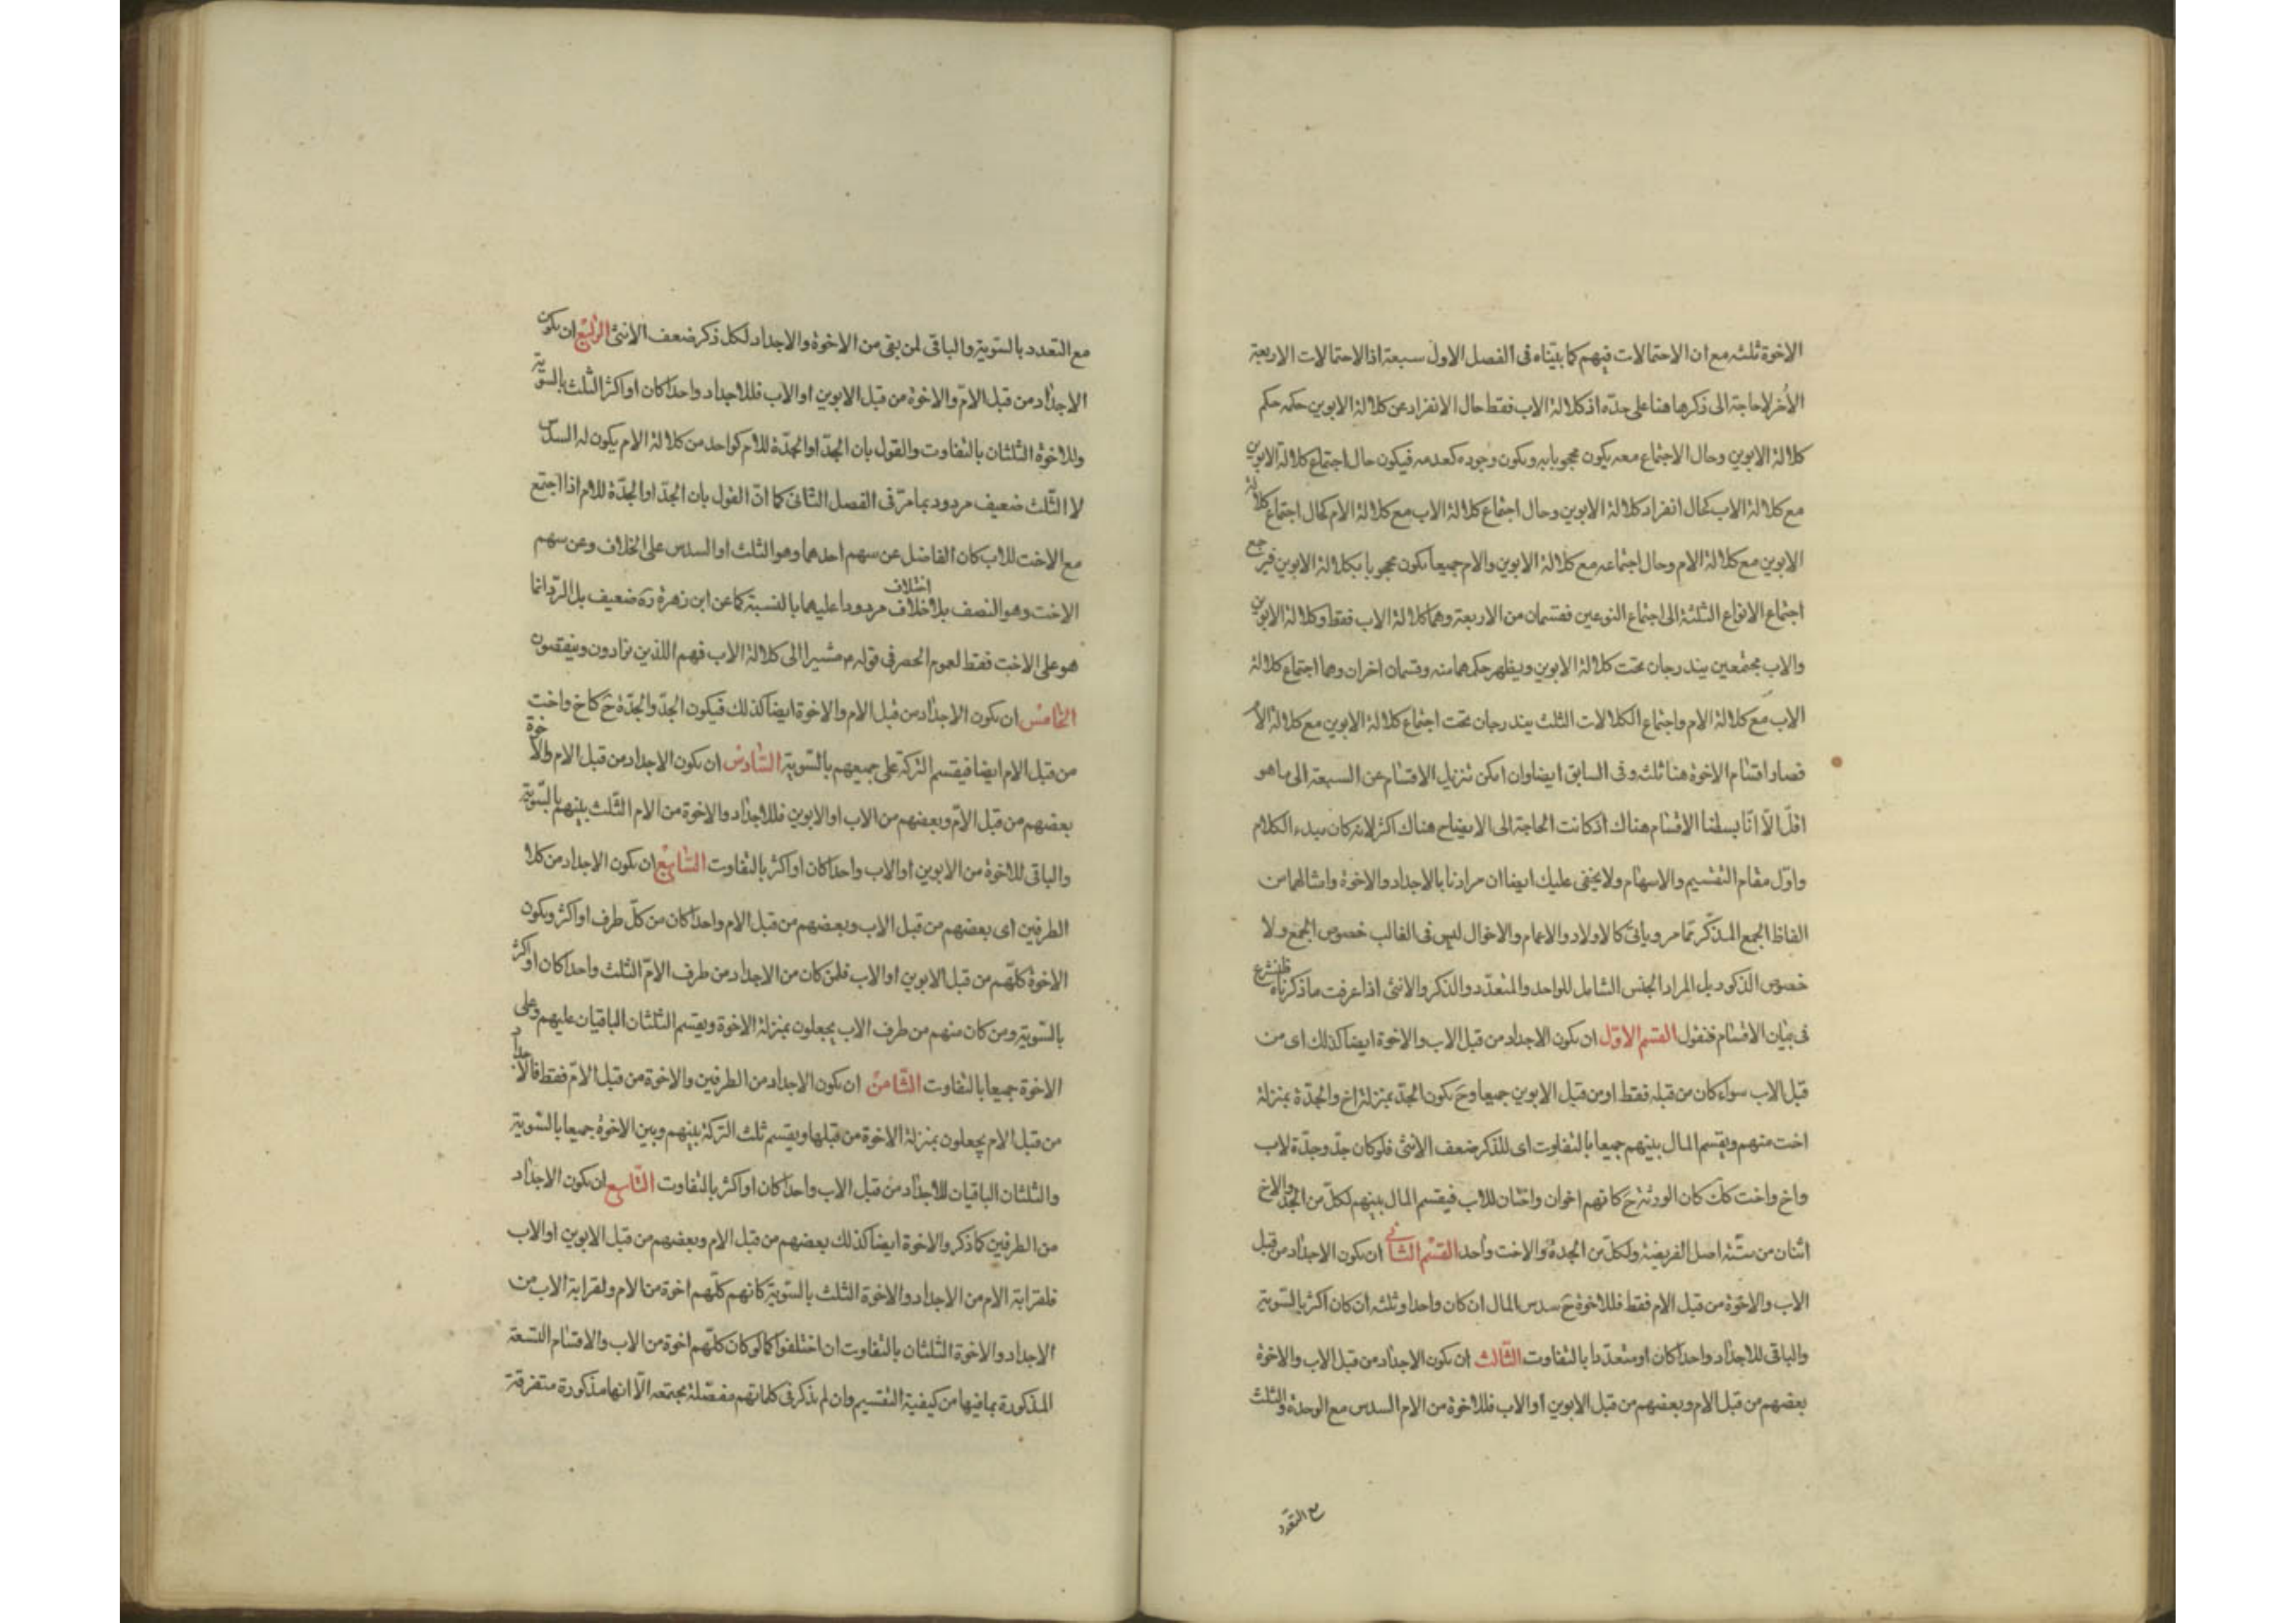 الاخوة ثلثه مع ان الاحتمالات فيهم كما بيّناه فى الفصل الاول سبعة اذا الاحتمالات الاربعة
الأخر لا حاجة الى ذكرها هنا على حدّه اذ كلالة الاب فقط حال الانفراد عن كلالة الابوين حكمه حكم
كلالة الابوين وحال الاجتماع معه يكون محجوبا به ويكون وجوده كعدمه فيكون حال اجتماع كلالة الابوين
مع كلالة الاب كحال انفراد كلالة الابوين وحال اجتماع كلالة الاب مع كلالة الام كحال اجتماع كلالة
الابوين مع كلالة الام وحال اجتماعه مع كلالة الابوين والام جميعا يكون محجوبا بكلالة الابوين فيرجع
اجتماع الانواع الثلثة الى اجتماع النوعين فقسمان من الاربعة وهما كلالة الاب فقط وكلالة الابوين
والاب مجتمعين يندرجان تحت كلالة الابوين ويظهر حكمهما منه وقسمان اخران وهما اجتماع كلالة
الاب مع كلالة الام واجتماع الكلالات الثلث يندرجان تحت اجتماع كلالة الابوين مع كلالة الام
فصار اقسام الاخوة هنا ثلثه وفى السابق ايضا وان امكن تنزيل الاقسام عن السبعة الى ما هو
اقلّ الّا انّا بسطنا الاقسام هناك اذ كانت الحاجة الى الايضاح هناك اكثر لانه كان مبدء الكلام
واوّل مقام التقسيم والاسهام ولا يخفى عليك ايضا ان مرادنا بالاجداد والاخوة وامثالهما من
الفاظ الجمع المذكّر ممّا مر وياتى كالاولاد والاعمام والاخوال ليس فى الغالب خصوص الجمع ولا
خصوص الذكور بل المراد الجنس الشامل للواحد والمتعدّد والذكر والانثى اذا عرفت ما ذكرناه فلنشرع
فى بيان الاقسام فنقول القسم الاوّل ان يكون الاجداد من قبل الاب والاخوة ايضا كذلك اى من
قبل الاب سواء كان من قبله فقط او من قبل الابوين جميعا وح يكون الجدّ بمنزلة اخ والجدّة بمنزلة
اخت منهم ويقسم المال بينهم جميعا بالتفاوت اى للذكر ضعف الانثى فلو كان جدّ وجدّة لاب
واخ واخت كك كان الورثة ح كانهم اخوان واختان للاب فيقسم المال بينهم لكلّ من الجدّ والاخ
اثنان من ستّه اصل الفريضة ولكلّ من الجدة والاخت واحد القسم الثانى ان يكون الاجداد من قبل
الاب والاخوة من قبل الام فقط فللاخوة ح سدس المال ان كان واحدا وثلثه ان كان اكثر بالسّوية
والباقى للاجداد واحدا كان او متعدّدا بالتفاوت الثالث ان يكون الاجداد من قبل الاب والاخوة
بعضهم من قبل الام وبعضهم من قبل الابوين او الاب فللاخوة من الام السدس مع الوحدة والثلث
مع التعدد
مع التعدد بالسّوية والباقى لمن بقى من الاخوة والاجداد لكل ذكر ضعف الانثى الرابع ان يكون
الاجداد من قبل الامّ والاخوة من قبل الابوين او الاب فللاجداد واحدا كان او اكثر الثلث بالسّوية
وللاخوة الثلثان بالتفاوت والقول بان الجدّ او الجدّة للام كواحد من كلالة الام يكون له السدس
لا الثّلث ضعيف مردود بما مرّ فى الفصل الثانى كما انّ القول بان الجدّ او الجدّة للام اذا اجتمع
مع الاخت للاب كان الفاضل عن سهم احدهما وهو الثلث او السدس على الخلاف وعن سهم
الاخت وهو النصف بلا خلاف اختلاف مردودا عليهما بالنسبة كما عن ابن زهرة ره ضعيف بل الردّ انما
هو على الاخت فقط لعموم الحصر فى قوله م مشيرا الى كلالة الاب فهم اللذين يزادون وينقصون
الخامس ان يكون الاجداد من قبل الام والاخوة ايضا كذلك فيكون الجدّ والجدّة ح كاخ واخت
من قبل الام ايضا فيقسم التركة على جميعهم بالسّوية السّادس ان يكون الاجداد من قبل الام والاخوة
بعضهم من قبل الامّ وبعضهم من الاب او الابوين فللاجداد والاخوة من الام الثّلث بينهم بالسّوية
والباقى للاخوة من الابوين او الاب واحدا كان او اكثر بالتفاوت السّابع ان يكون الاجداد من كلا
الطرفين اى بعضهم من قبل الاب وبعضهم من قبل الام واحدا كان من كلّ طرف او اكثر ويكون
الاخوة كلّهم من قبل الابوين او الاب فلمن كان من الاجداد من طرف الامّ الثلث واحدا كان او اكثر
بالسّوية ومن كان منهم من طرف الاب يجعلون بمنزلة الاخوة ويقسم الثلثان الباقيان عليهم وعلى
الاخوة جميعا بالتفاوت الثّامن ان يكون الاجداد من الطرفين والاخوة من قبل الامّ فقط فالاجداد
من قبل الام يجعلون بمنزلة الاخوة من قبلها ويقسم ثلث التركة بينهم وبين الاخوة جميعا بالسّوية
والثلثان الباقيان للاجداد من قبل الاب واحدا كان او اكثر بالتفاوت التّاسع ان يكون الاجداد
من الطرفين كما ذكر والاخوة ايضا كذلك بعضهم من قبل الام وبعضهم من قبل الابوين او الاب
فلقرابة الام من الاجداد والاخوة الثلث بالسّوية كانهم كلّهم اخوة من الام ولقرابة الاب من
الاجداد والاخوة الثلثان بالتفاوت ان اختلفوا كما لو كان كلّهم اخوة من الاب والاقسام التسعة
المذكورة بما فيها من كيفية التقسيم وان لم يذكر فى كلماتهم مفصّلة مجتمعه الّا انها مذكورة متفرقة